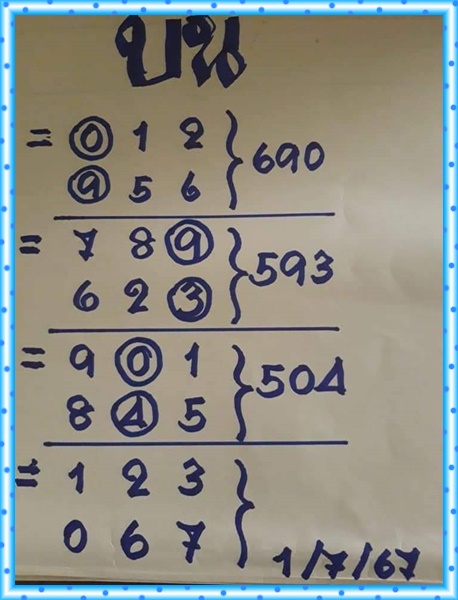 บน
= 0 1 2
9 5 6 } 690
= 7 8 9
6 2 3 } 593
= 9 0 1
8 4 5 } 504
= 1 2 3
0 6 7 }
1/7/67